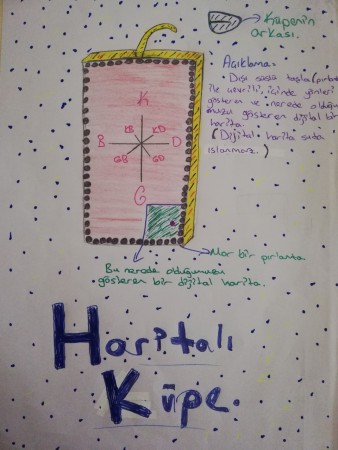 Küpenin
arkası.
Açıklama:
Dışı süslü taşla (pırlanta)
ile çevrili, içinde yönleri
gösteren ve nerede olduğu
muzu gösteren dijital bir
harita.
(Dijital harita suda
ıslanmaz.)
K
KB KD
B D
GB GD
G
Mor bir pırlanta
Bu nerede olduğumuzu
gösteren bir dijital harita.
Haritalı
Küpe.